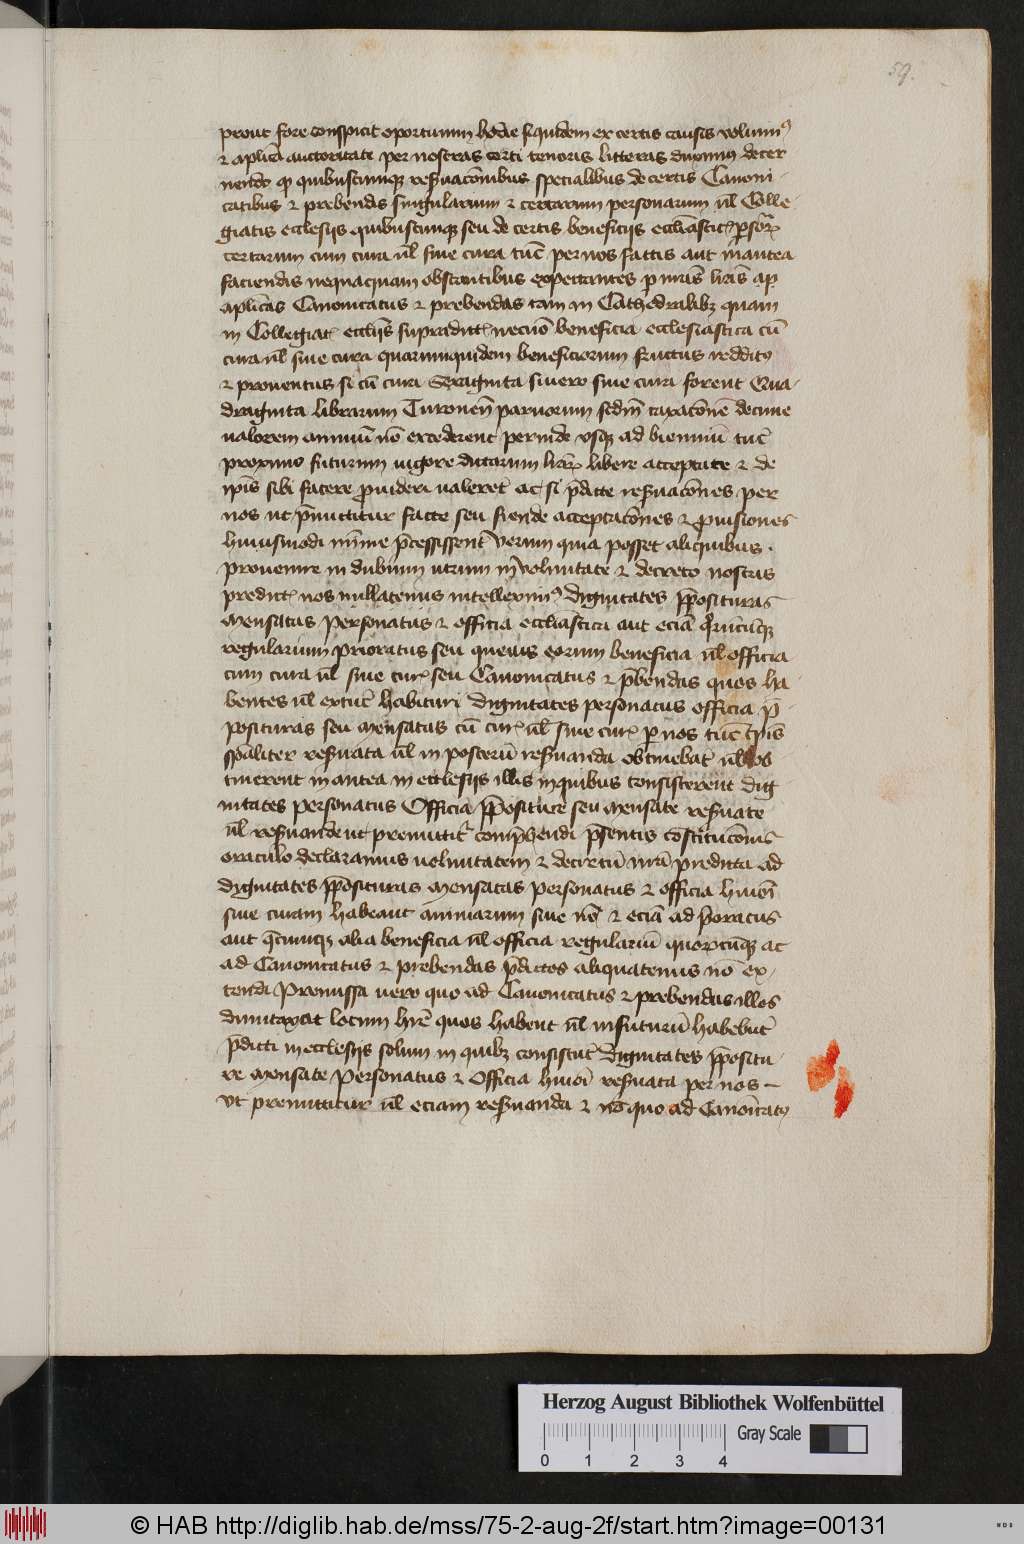 59.
prout fore conspicit oportunum hodie siquidem ex certis causis voluim⁹
⁊ aplica auctoritate per nostras certi tenoris litteras duximus decer
nendo q̄ quibuscumque reseruacōnibus specialibus de certis Canoni-
catibus ⁊ prebendis singularum ⁊ certarum personarum ul̄ Colle-
giatis ecclesijs quibuscumque seu de certis beneficijs eccliāsticꝭ
certarum cum cura ul̄ sine cura tūc per nos factis aut in antea
faciendis nequaquam obstantibus expectantes
aplicas Canonicatus ⁊ prebendas tam in Cathedralibꝫ quam
in Collegiatꝭ eccliīs supradictꝭ necnō beneficia ecclesiastica cū
cura ul̄ sine cura quorumquidem beneficiorum fructus redditꝰ
⁊ prouentus si cū cura Sexaginta si uero sine cura forent Qua-
draginta librarum Turonen̄ paruorum secdm̄ taxacōne decime
ualorem annuū nō excederent perinde usque ad bienniū tūc
proximo futurum uigore dictarum lrārꝫ libere acceptare ⁊ de
ip̄is sibi facere ꝓuideri ualeret ac si p̄dicte reseruacōnes per
nos ut p̄mittitur facte seu fiende acceptacōnes ⁊ ꝓuisiones
huiusmodi mīme p̄cessissent Verum quia posset aliquibus.
prouenire in dubium utrum in uoluntate ⁊ decreto nostris
predictꝭ nos nullatenus intelleximꝰ dignitates p̄posituras
Mensatus personatus ⁊ officia eccliāstica aut eciā
regularium prioratus seu queuis eorum beneficia ul̄ officia
cum cura ul̄ sine curꝭ seu Canonicatus ⁊ p̄bendas quos ha-
bentes ul̄ extūc habituri dignitates personatus officia p̄-
posituras seu Mensatus cū curꝭ ul̄ sine curꝭ p nos tūc ip̄is
sp̄aliter reseruata ul̄ in posterū reseruanda obtinebāt ul̄ ob-
tinerent in antea in ecclesijs illis in quibus consisterent dig
nitates personatus Officia p̄positure seu Mensate reseruate
ul̄ reseruande ut premittit͛ comp̄hendi p̄sentis cōstitucōnis
oraculo declaramus uoluntatem ⁊ decretū nr̄a predicta ad
dignitates p̄posituras Mensatas personatus ⁊ officia huiōi
siue curam habeant animarum siue nō ⁊ eciā ad p̄oratus
aut q̄cumqꝫ alia beneficia ul̄ officia regulariū quorcūque ac
ad Canonicatus ⁊ prebendas p̄dictos aliquatenus nō ex-
tendi Premissa uero quo ad Canonicatus ⁊ prebendas illos
dumtaxat locum hr̄e quos habent ul̄ in futurū habebūt
p̄dicti in ecclesijs solum in quibꝫ consistūt dignitates p̄positu-
re Mensate Personatus ⁊ Officia huiōi reseruata per nos -
Vt premittitur ul̄ eciam reseruanda ⁊ nō quo ad Canonicatꝰ
Herzog August Bibliothek Wolfenbüttel
0 1 2 3 4 Gray Scale
© HAB http://diglib.hab.de/mss/75-2-aug-2f/start.htm?image=00131